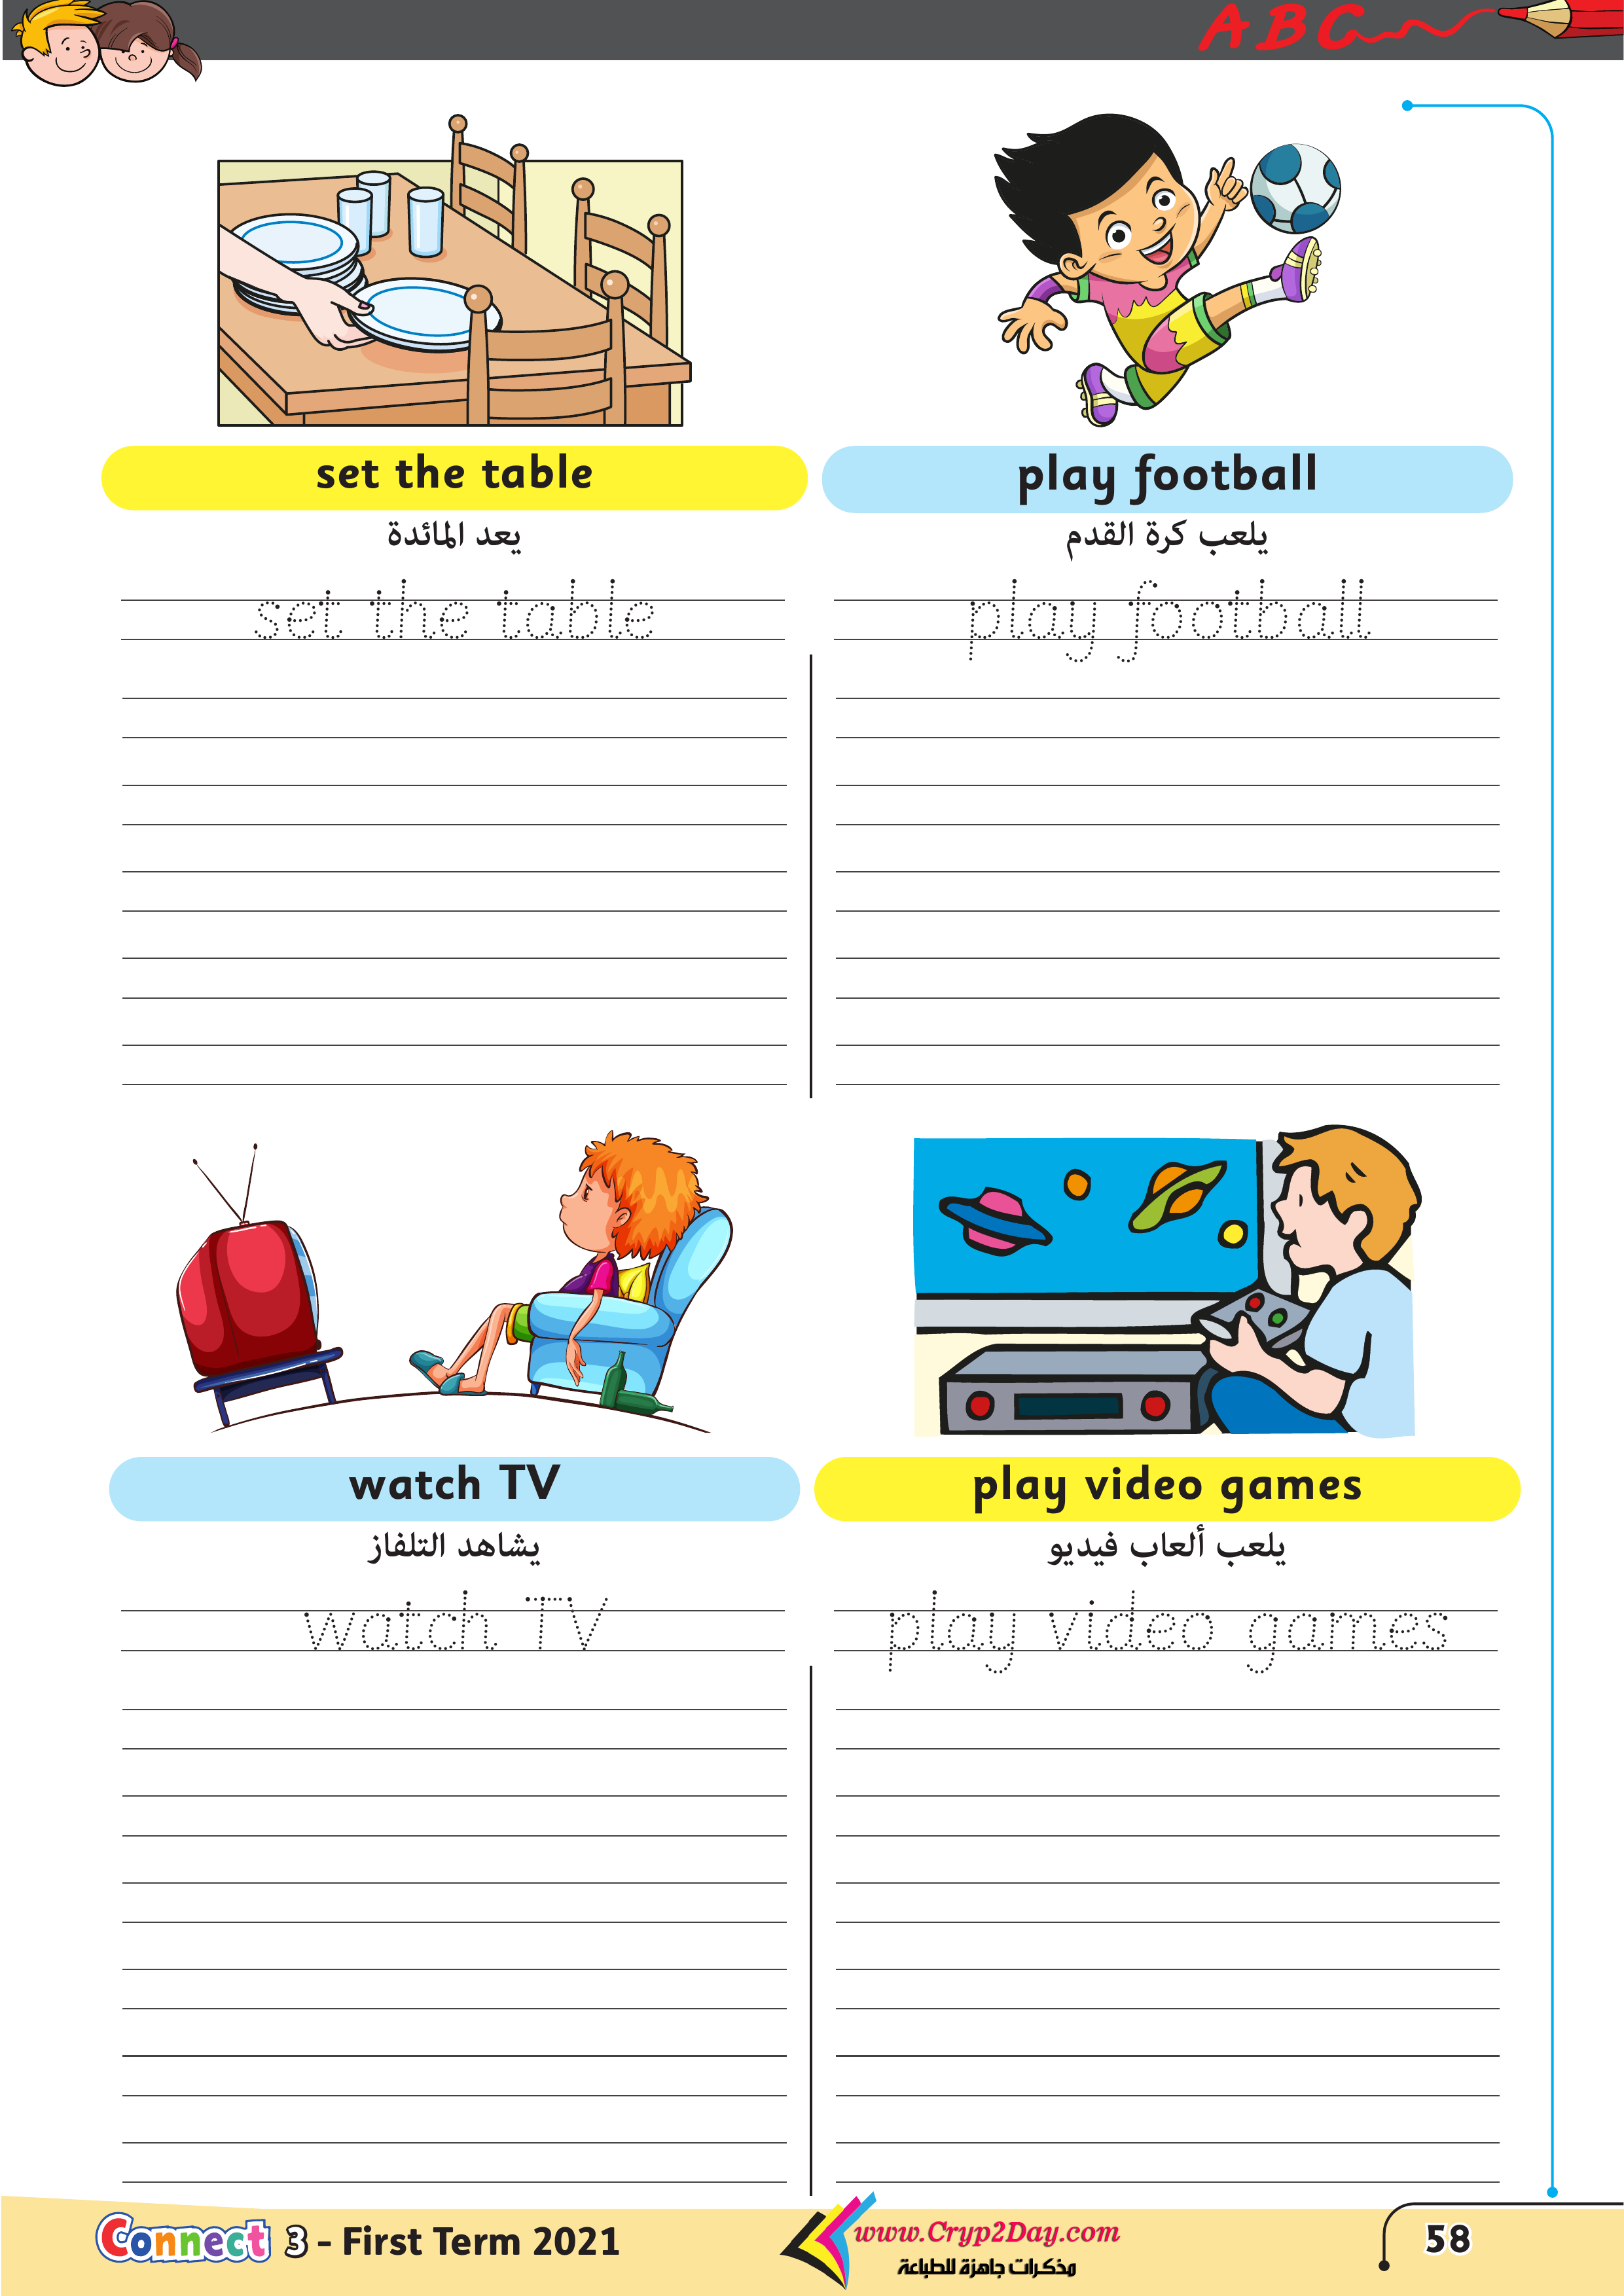 ABC
set the table
يعد المائدة
set the table
play football
يلعب كرة القدم
play football
watch TV
يشاهد التلفاز
watch TV
play video games
يلعب ألعاب فيديو
play video games
Connect 3 - First Term 2021
www.Cryp2Day.com
مذكرات جاهزة للطباعة
58